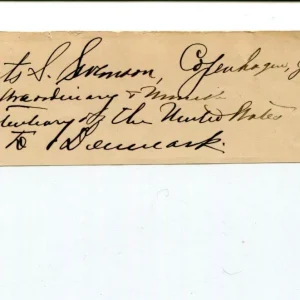 ts S. Swenson, Copenhagen,
traordinary & Minist
tentiary of the United States
to Denmark.